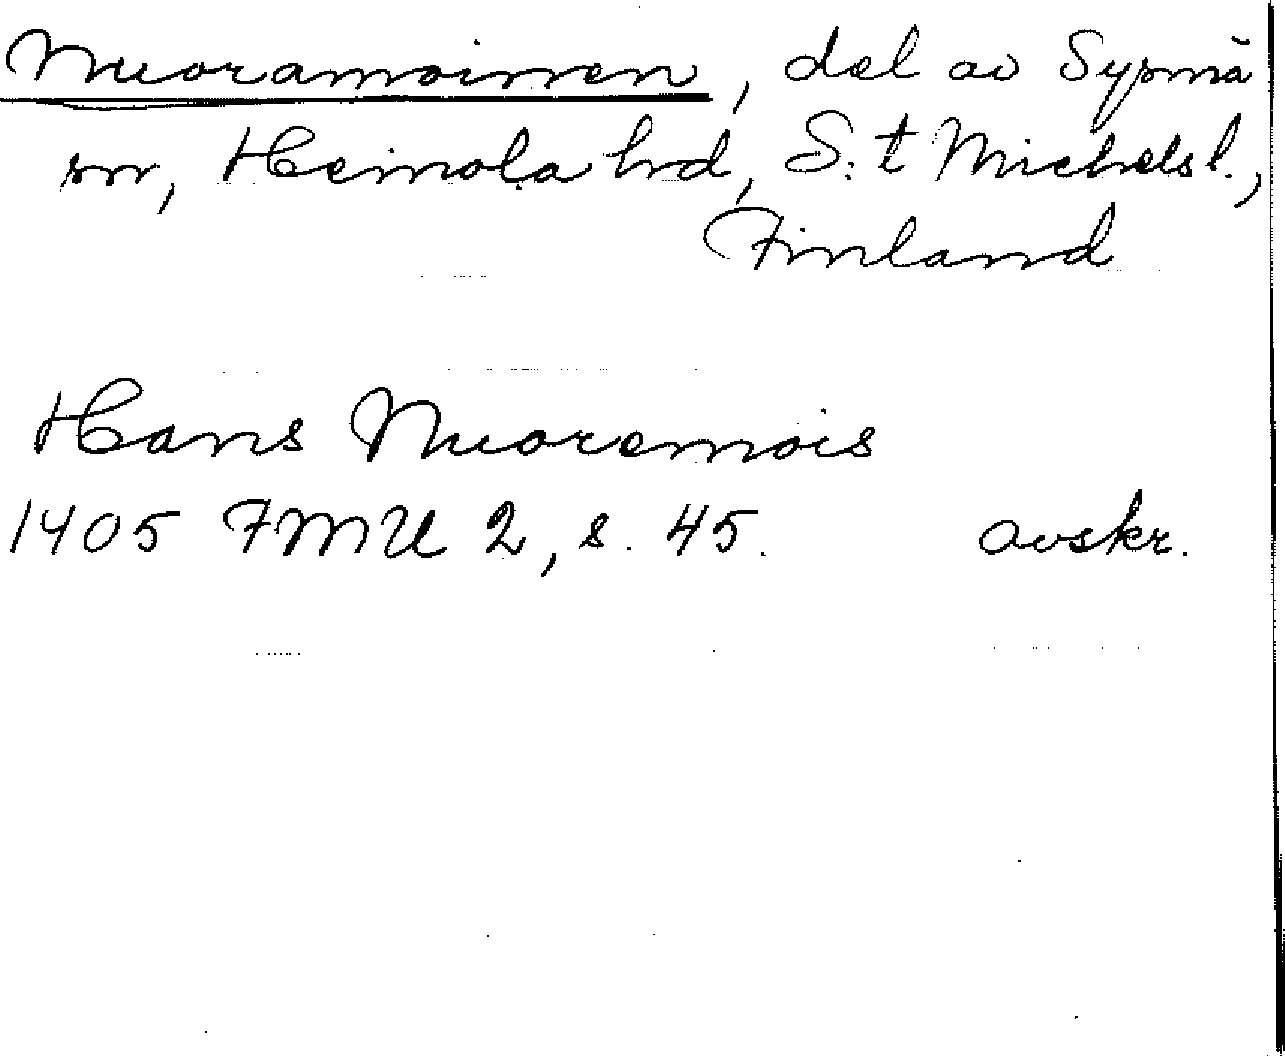 Nuoramoinen, del av Sysmä
sn, Heinola hd, S:t Michels l.,
Finland
Hans Nuoremois
1405 FMU 2, s. 45. avskr.